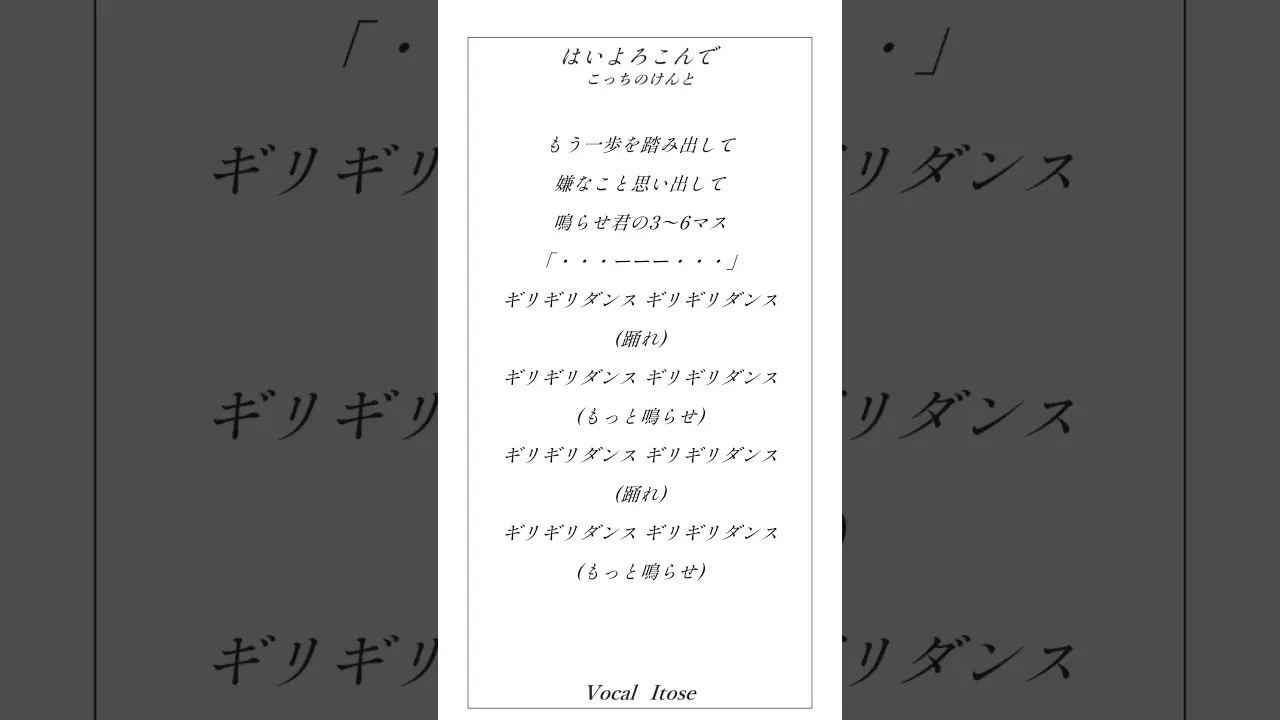 はいよろこんで
こっちのけんと
もう一歩を踏み出して
嫌なこと思い出して
鳴らせ君の3〜6マス
「・・・ーーー・・・」
ギリギリダンス ギリギリダンス
(踊れ)
ギリギリダンス ギリギリダンス
(もっと鳴らせ)
ギリギリダンス ギリギリダンス
(踊れ)
ギリギリダンス ギリギリダンス
(もっと鳴らせ)
Vocal Itose